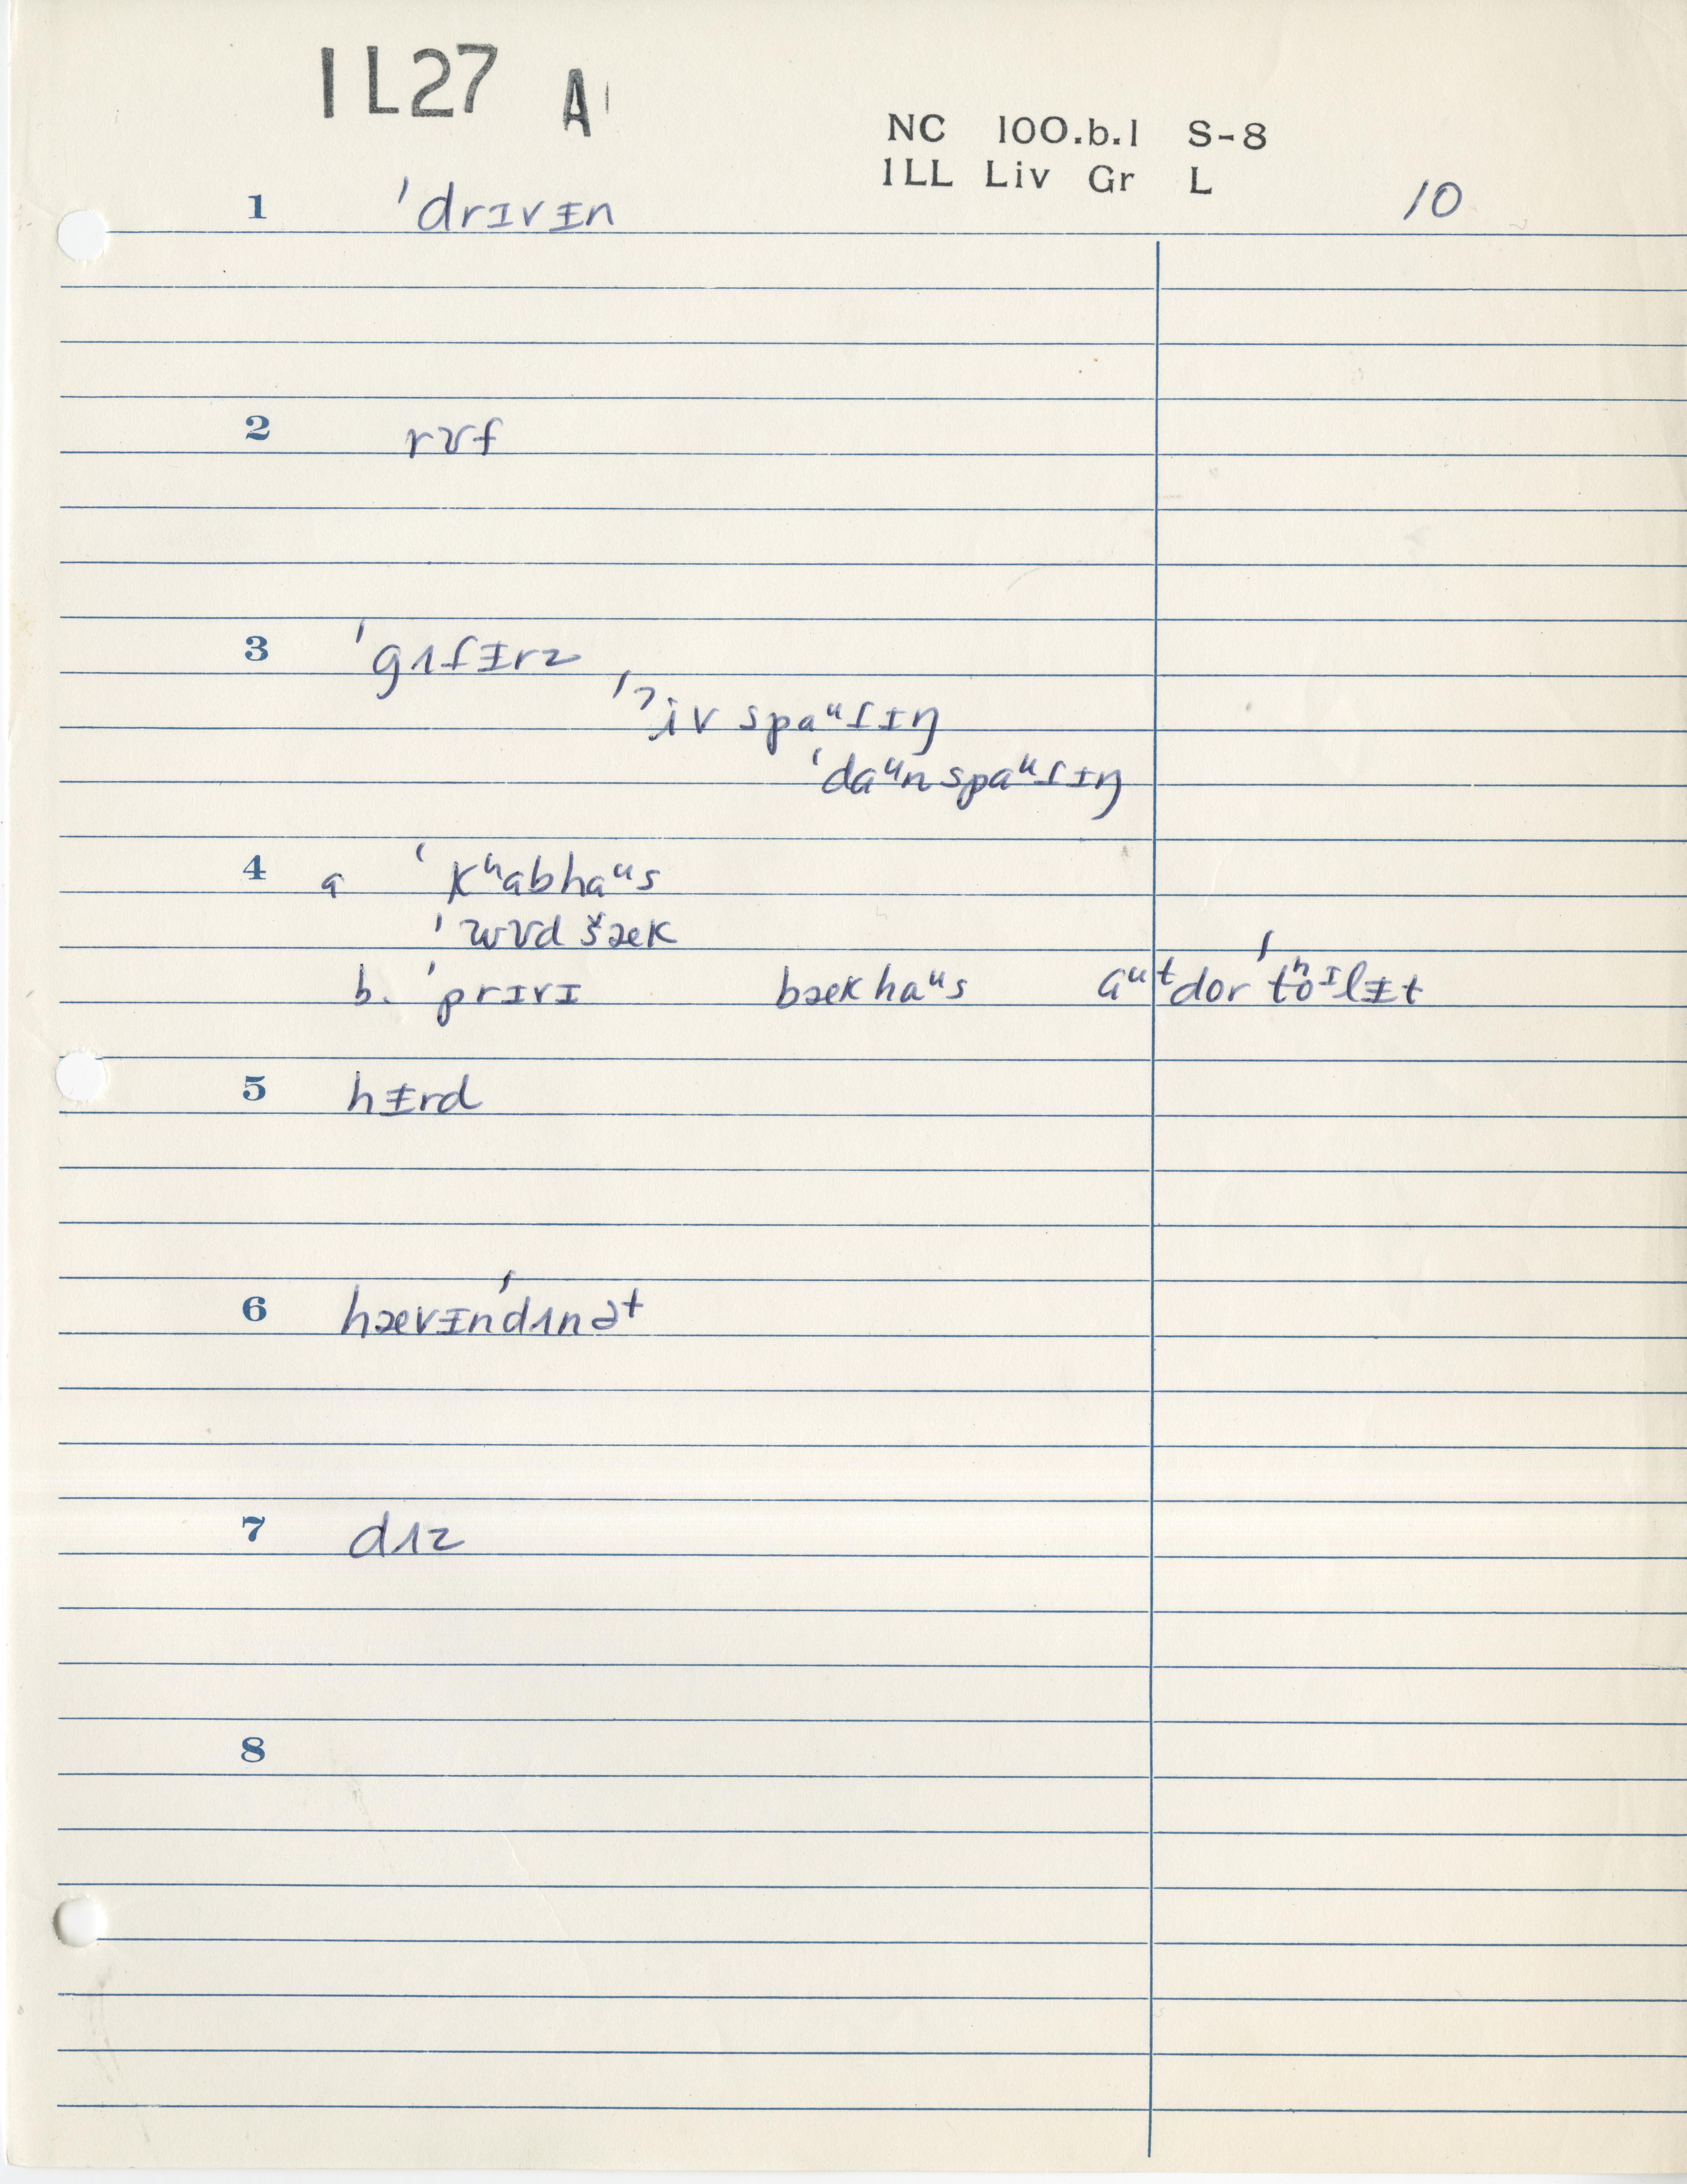 1L27 A1
NC 100.b.1 S-8
1LL Liv Gr L
10
1 ˈdrɪvᵻn
2 rʊf
3 ˈgʌtᵻrz
ˈʔivspaᵘtɪŋ
ˈdaᵘnspaᵘtɪŋ
4 a ˈkʰabhaᵘs
ˈwʊdšæk
b. ˈprɪvɪ bækhaᵘs aᵘᵗdorˈtʰoᶦlᵻt
5 hᵻrd
6 hævᵻnˈdʌnəᵗ
7 dʌz
8